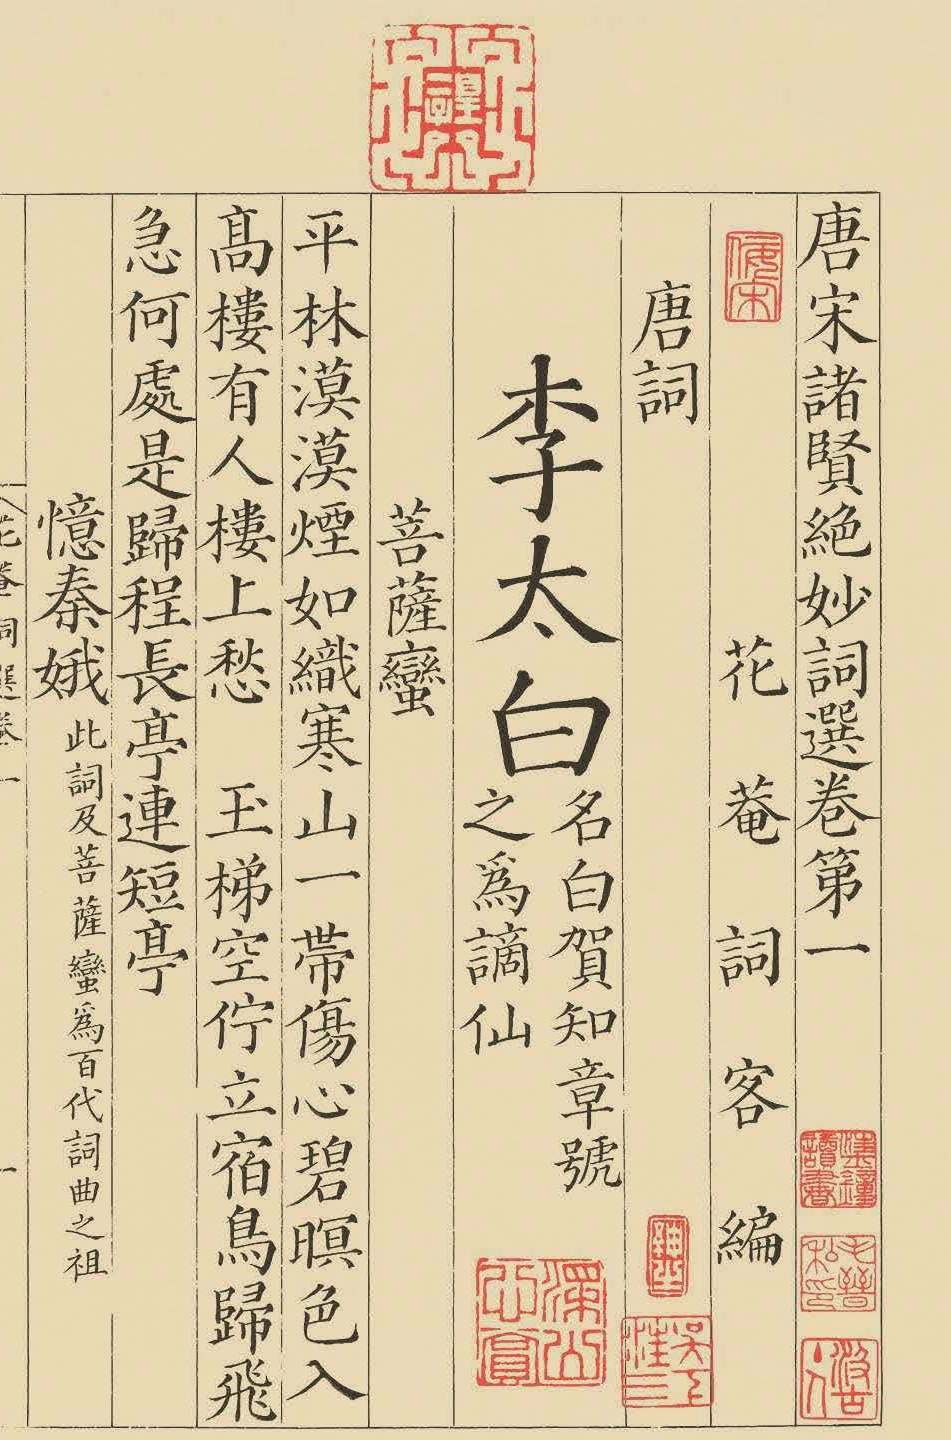 唐宋諸賢絕妙詞選卷第一
花菴詞客編
唐詞
李太白
名白賀知章號
之爲謫仙
菩薩蠻
平林漠漠煙如織寒山一帶傷心碧暝色入
高樓有人樓上愁　玉梯空佇立宿鳥歸飛
急何處是歸程長亭連短亭
憶秦娥
此詞及菩薩蠻爲百代詞曲之祖
花菴詞選卷一
一